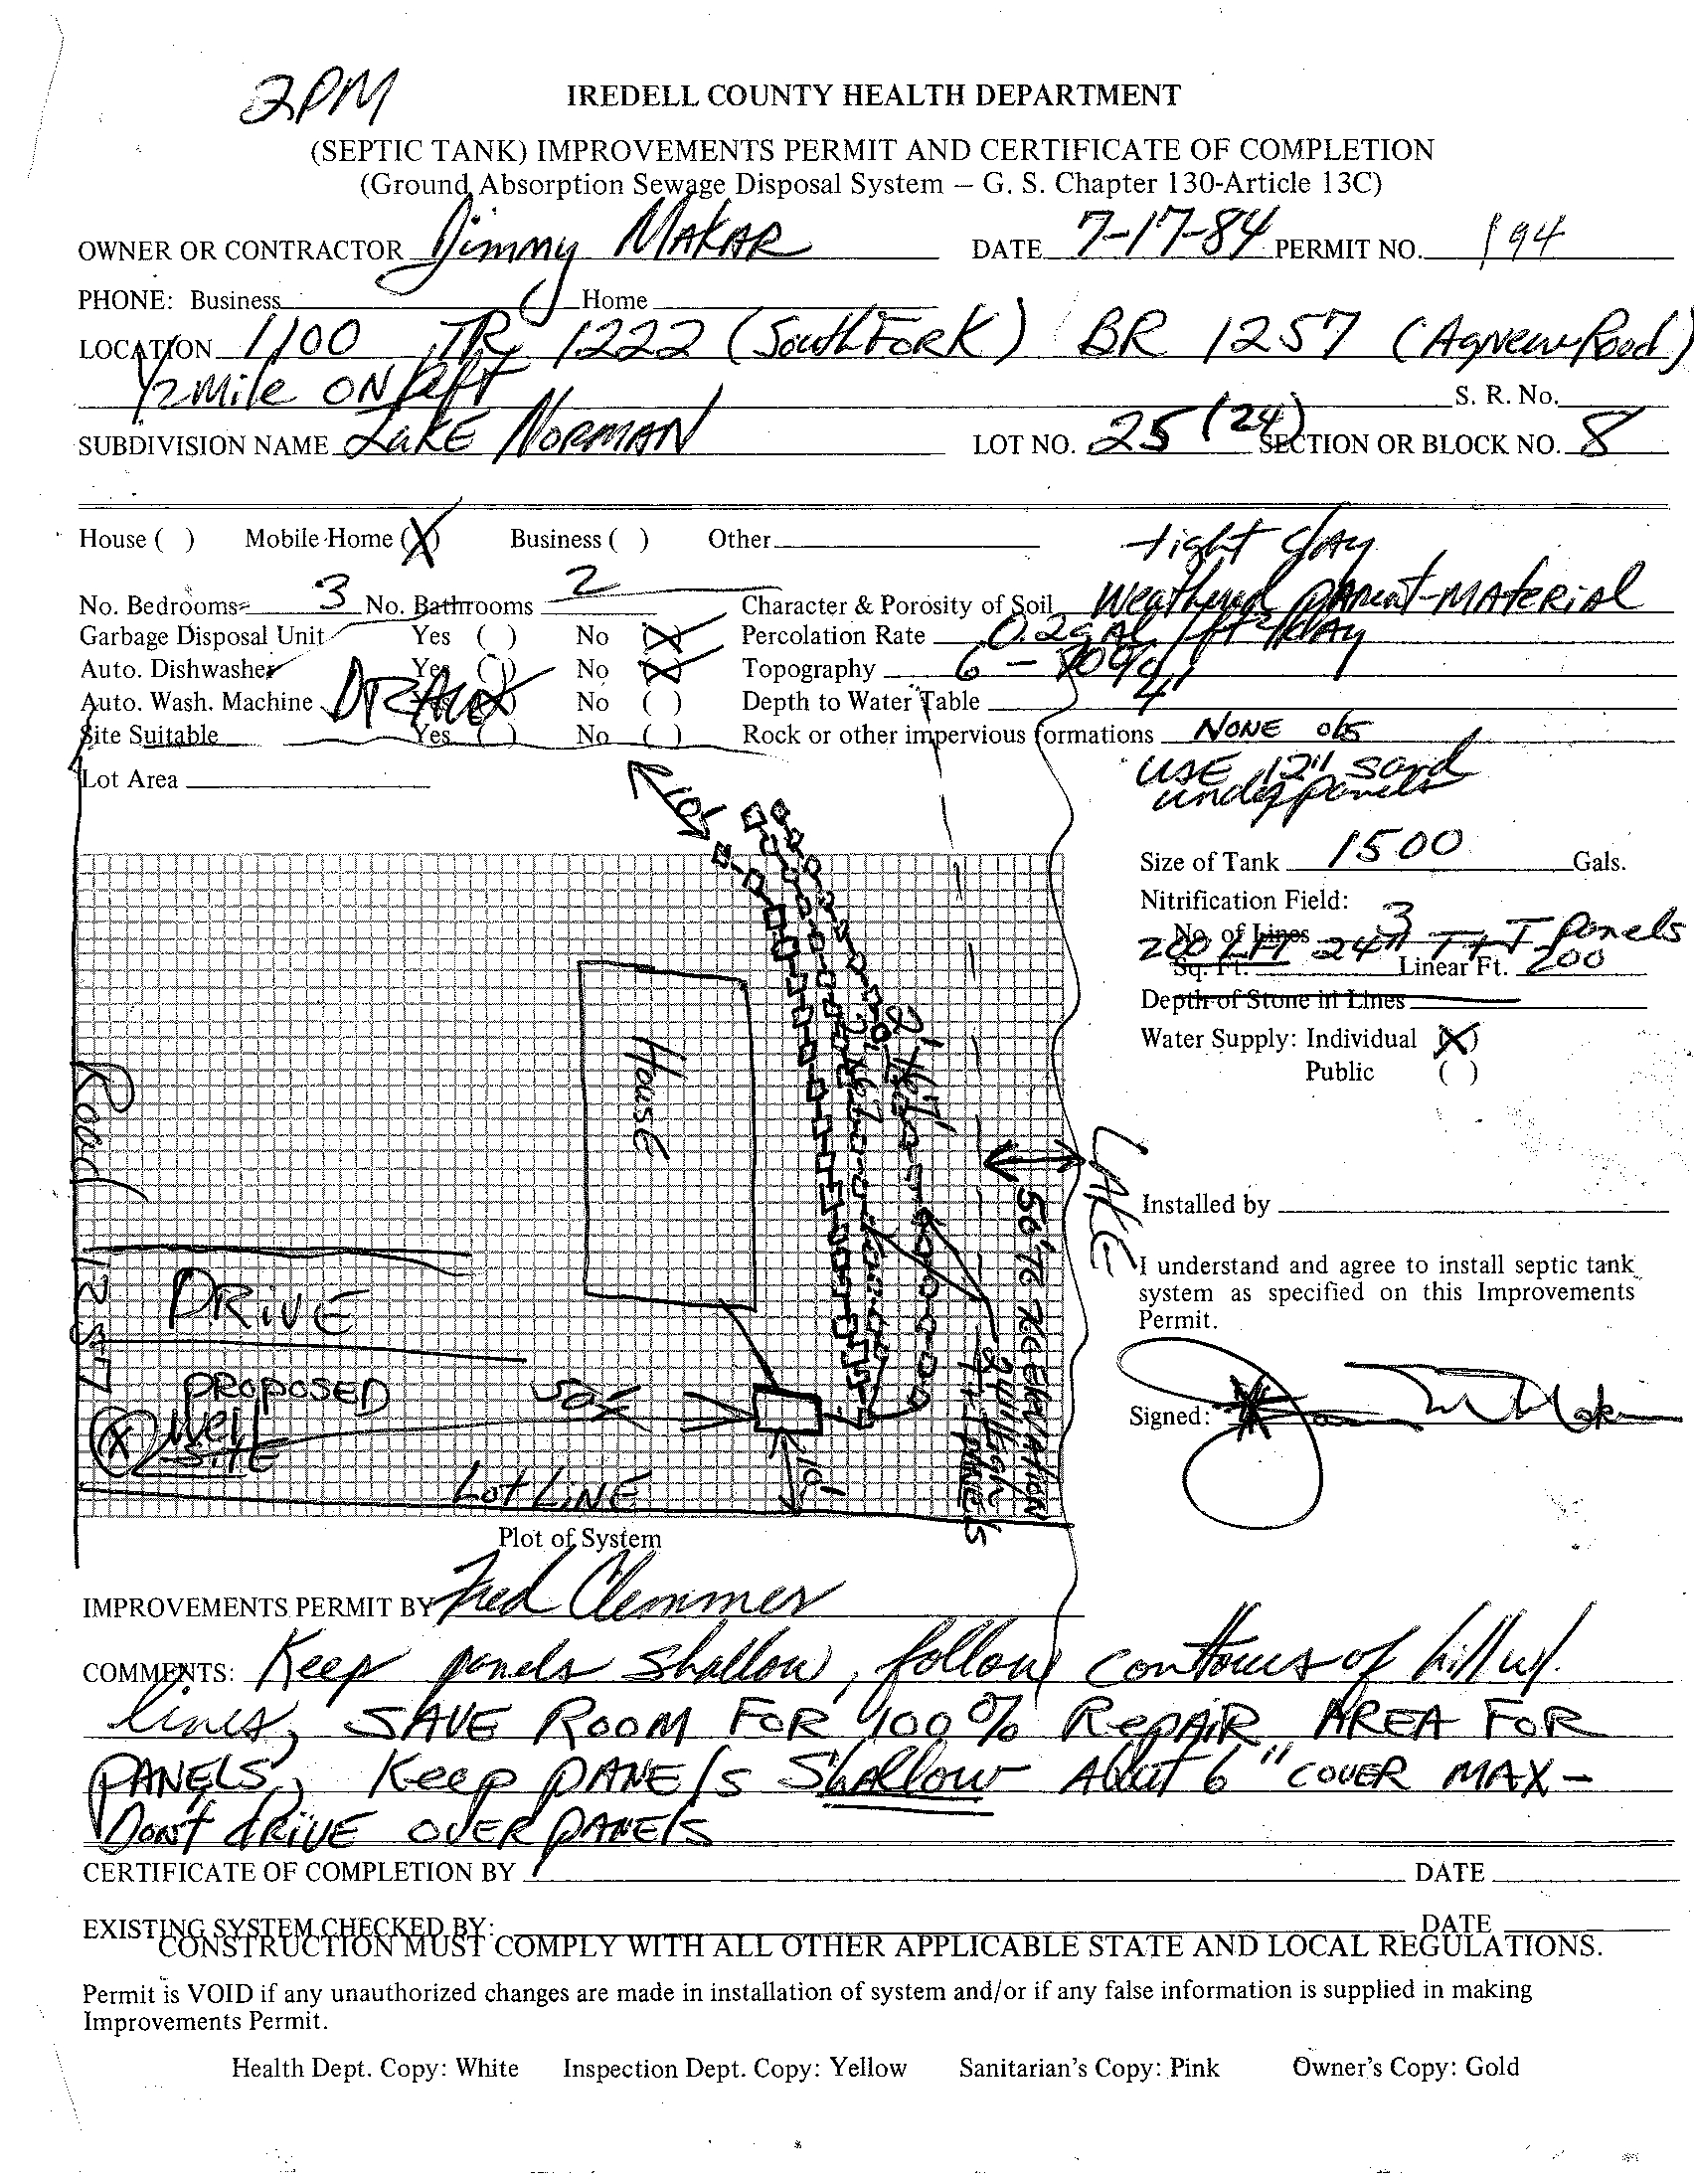 2PM
IREDELL COUNTY HEALTH DEPARTMENT
(SEPTIC TANK) IMPROVEMENTS PERMIT AND CERTIFICATE OF COMPLETION
(Ground Absorption Sewage Disposal System — G. S. Chapter 130-Article 13C)
OWNER OR CONTRACTOR Jimmy MAKAR DATE 7-17-84 PERMIT NO. 194
PHONE: Business Home
LOCATION 1100 TR 1222 (South FORK) BR 1257 (Agnew Road)
1/2 Mile ON left S. R. No.
SUBDIVISION NAME LAKE NORMAN LOT NO. 25 (24) SECTION OR BLOCK NO. 8
House ( ) Mobile Home (X) Business ( ) Other
tight clay
No. Bedrooms 3 No. Bathrooms 2 Character & Porosity of Soil Weathered parent-MATERIAL
Garbage Disposal Unit Yes ( ) No (X) Percolation Rate 0.2 gAL/ft²/dAy
Auto. Dishwasher Yes ( ) No (X) Topography 6 - 10%
Auto. Wash. Machine Yes (X) No ( ) Depth to Water Table 4'
Site Suitable Yes ( ) No ( ) Rock or other impervious formations NONE obs
Lot Area
USE 12" sand
under panels
10'
Size of Tank 1500 Gals.
Nitrification Field:
No. of Lines 3
200 LFT 24" T&T Panels
Sq. Ft. Linear Ft. 200
Depth of Stone in Lines
Water Supply: Individual (X)
Public ( )
House
2' x 67'
2' x 67'
Road 1257
LAKE
50' TO 760 ELEVATION
24" high
T+T PANELS
DRIVE
PROPOSED
Well
SITE
50'
10'
Lot LINE
Installed by
I understand and agree to install septic tank
system as specified on this Improvements
Permit.
Signed:
Plot of System
IMPROVEMENTS PERMIT BY Fred Clemmer
COMMENTS: Keep panels shallow, follow contours of hill w/
lines, SAVE ROOM FOR 100% REPAIR AREA FOR
PANELS, Keep PANElS Shallow About 6" COVER MAX -
Don't dRIVE OVER PANElS
CERTIFICATE OF COMPLETION BY DATE
EXISTING SYSTEM CHECKED BY: DATE
CONSTRUCTION MUST COMPLY WITH ALL OTHER APPLICABLE STATE AND LOCAL REGULATIONS.
Permit is VOID if any unauthorized changes are made in installation of system and/or if any false information is supplied in making
Improvements Permit.
Health Dept. Copy: White Inspection Dept. Copy: Yellow Sanitarian's Copy: Pink Owner's Copy: Gold